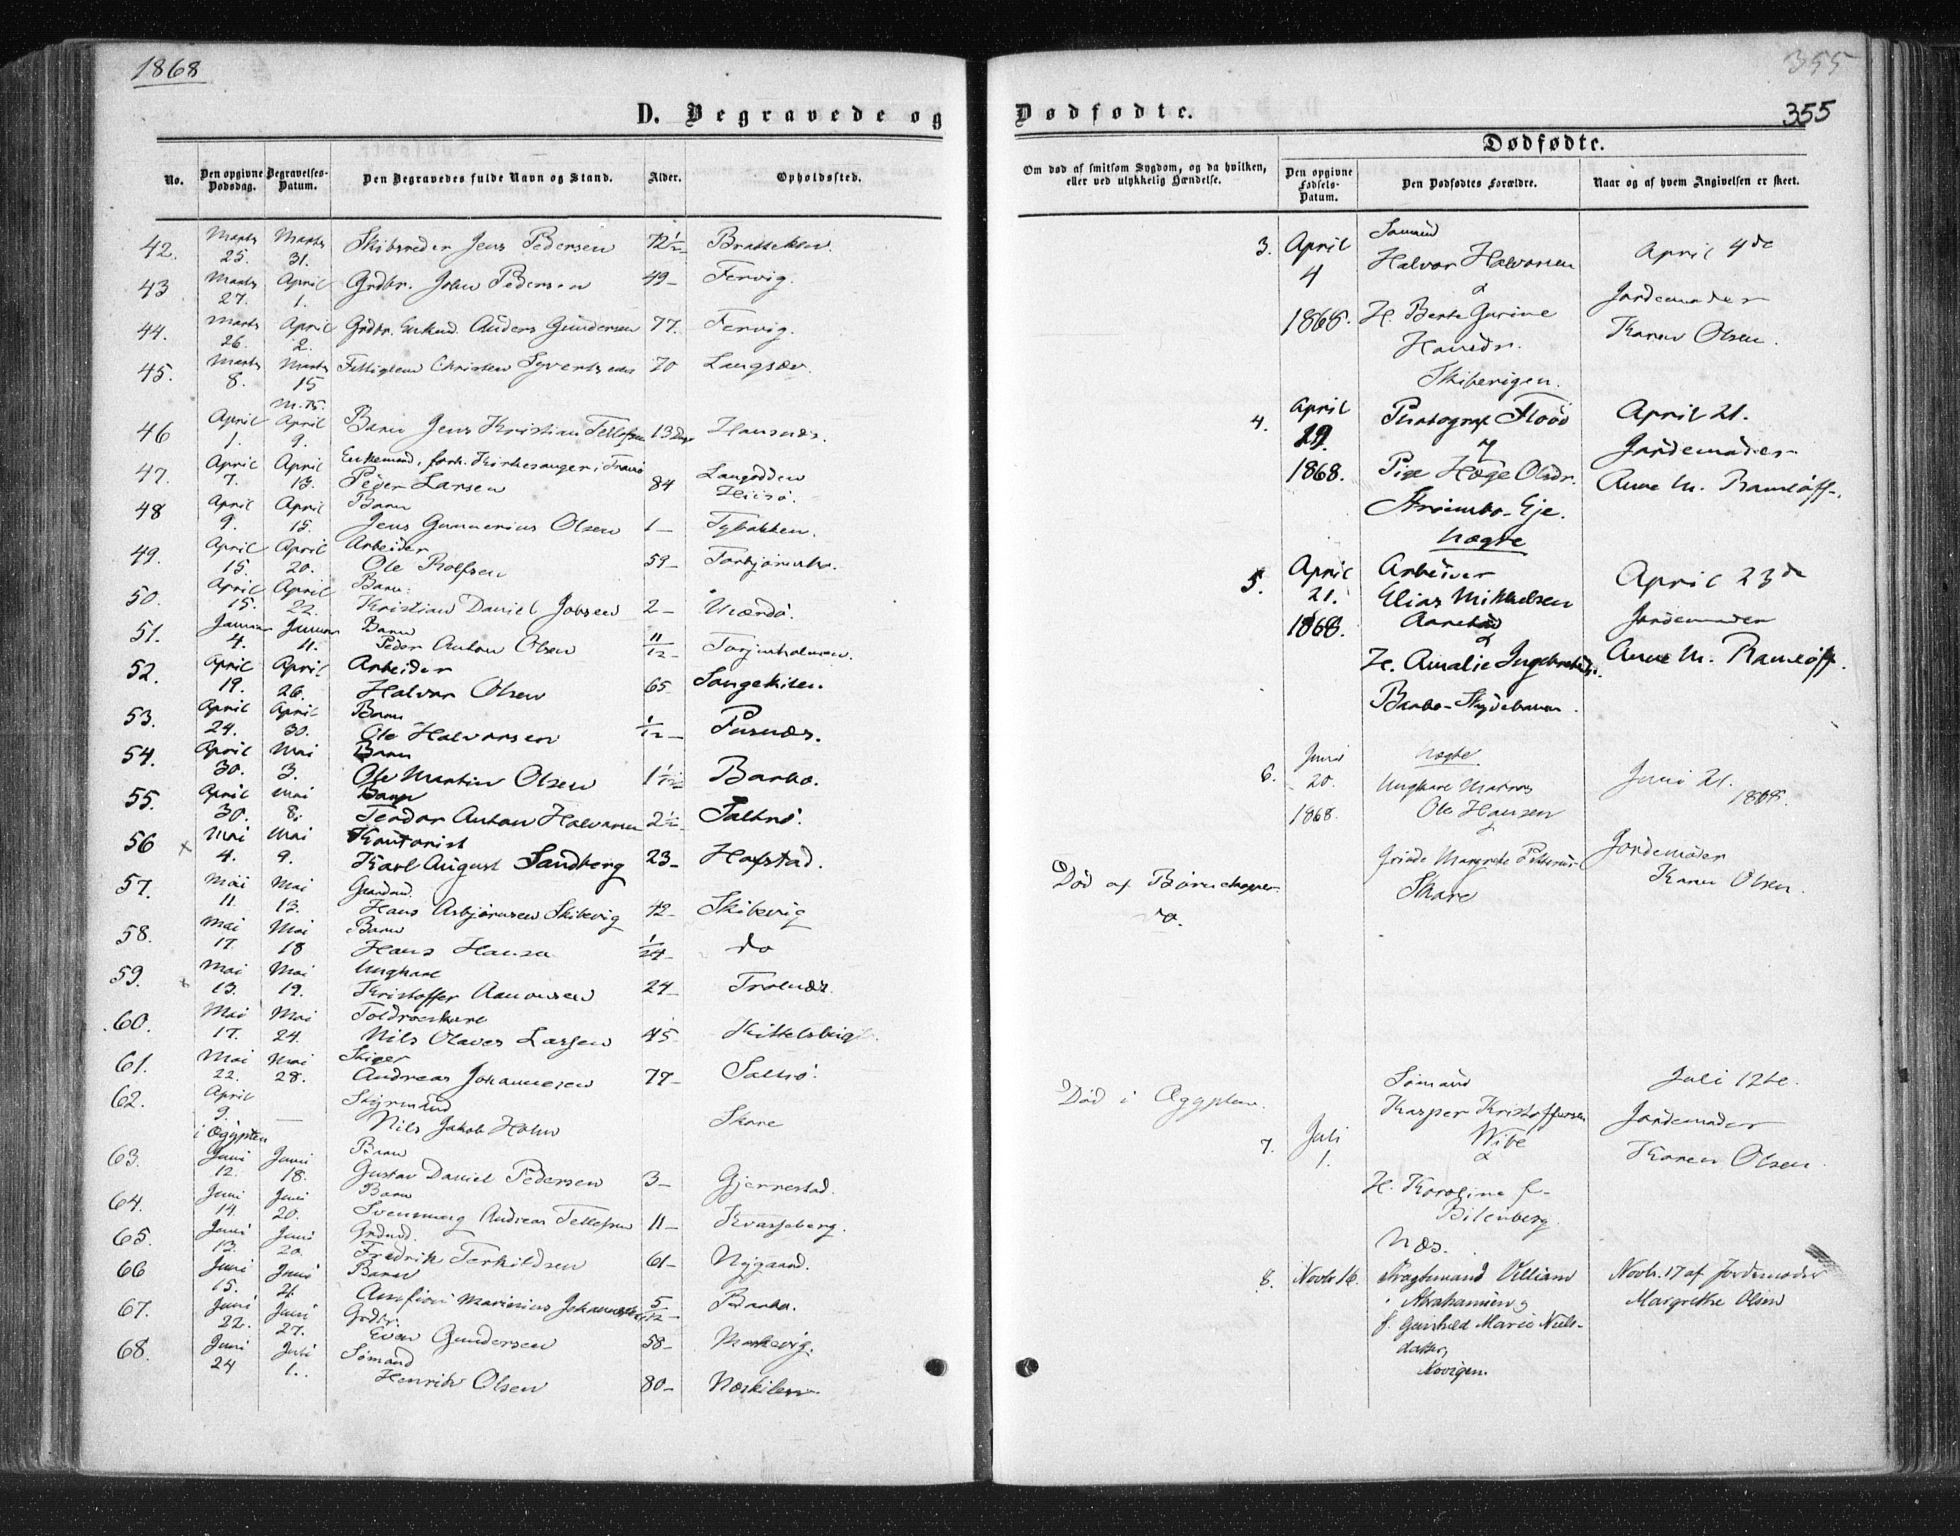 1868
355
355
D. Begravede og Dødfødte.
No. Den opgivne Dødsdag. Begravelses-Datum. Den Begravedes fulde Navn og Stand. Alder. Opholdssted.
42. Marts 25. Marts 31. Skibsreder Jens Pedersen 72½ Bratteklev.
43 Marts 27. April 1. Grdbr. John Pedersen 49 - Fervig.
44. Marts 26. April 2. Grdbr. Enkmd. Anders Gundersen 77. Fervig.
45. Marts 8. Marts 15 Fattiglem Christen Syvertsen 70 Langsæv.
46 April 1. April 9. Barn Jens Kristian Tellefsen 13 Dage Hausnæs.
47. April 7. April 13. Enkemand, forh. Kirkesanger i Tromø
Peder Larsen 84 Langodden Hisø.
48 April 9. April 15. Barn
Jens Gunnerius Olsen 1 - Tybakken.
49. April 15. April 20. Arbeider
Ole Rolfsen 59 - Torbjørnsb.
50. April 15. April 22. Barn:
Kristian Daniel Jobsen 2 - Mærdø.
51. Januar 4. Januar 11. Barn
Peder Anton Olsen 11/12 - Torjusholmen.
52. April 19. April 26. Arbeider
Halvor Olsen 65 Songekilen.
53. April 24. April 30. Barn
Ole Halvorsen 1/12 - Pusnæs.
54. April 30. Mai 3. Barn
Ole Martin Olsen 1 1/12 Barbo.
55. April 30. Mai 8. Barn
Teodor Anton Halvorsen 2½ - Saltrø.
56 x Mai 4. Mai 9. Kontorist
Karl August Sandberg 23 - Hofstad.
57. Mai 11. Mai 13. Gaardmd.
Hans Asbjørnsen Skibvig 42 - Skibevig
58. Mai 17. Mai 18 Barn
Hans Hansen 1/24 - do
59. x Mai 13. Mai 19. Ungkarl
Kristoffer Aanonsen 24 - Tromæs.
60. Mai 17. Mai 24. Toldroerskarl
Nils Olaves Larsen 45 Kittelsbugt
61. Mai 22. Mai 28. Skiper
Andreas Johannesen 77 - Saltrø.
62. April 9. i Ægypten — Styrmand
Nils Jakob Holm Skare
63. Juni 12. Juni 18. Barn
Gustav Daniel Pedersen 3 - Gjerrestad.
64. Juni 14. Juni 20. Barn
Svenning Andreas Tellefsen 11 - Kvasseberg.
65. Juni 13. Juni 20. Grdmd.
Fredrik Terkildsen 61 - Nygaard.
66 Juni 15. Juni 21. Barn
Amfion Marinius Johannesen 5/12 - Barbo.
67. Juni 22. Juni 27. Grdbr.
Even Gundersen 58 - Markevig.
68. Juni 24 Juli 1. Sømand
Henrik Olsen 80 - Næskilen
Om død af smitsom Sygdom, og da hvilken, eller ved ulykkelig Hændelse.
Død af Børnekopper
do.
Død i Ægypten.
Dødfødte.
Den opgivne Fødsels-Datum. Den Dødfødtes Forældre. Naar og af hvem Angivelsen er skeet.
3. April 4 1868. Sømand
Halvor Halvorsen
&
H. Berte Gurine
Hansdr.
Skibevigen.
April 4de
Jordemoder
Karen Olsen.
4. April 19. 1868. Photograf Flood
&
Pige Hæge Olsdr.
Strømsbo Eje.
uægte
April 21.
Jordemoder
Anne M. Ramløff.
5. April 21. 1868. Arbeider
Elias Mikkelsen
Aarestad
&
H. Amalie Ingebretsd.
Barbo-Skydebanen.
April 23de
Jordemoder
Anne M. Ramløff.
6. Juni 20. 1868. uægte
Ungkarl Matros
Ole Hansen
&
Margrete
Skare
Juni 21. 1868.
Jordemoder
Karen Olsen.
7. Juli 1. Sømand
Kasper Kristoffersen
Wibe
&
H. Karoline f.
Bilenberg.
Næs.
Juli 12te.
Jordemoder
Karen Olsen.
8. Novbr. 16. Fragtmand Villiam
Abrahamsen &
f. Gunhild Marie Niels-
datter,
Kovigen.
Novbr. 17 af Jordemoder
Margrethe Olsen